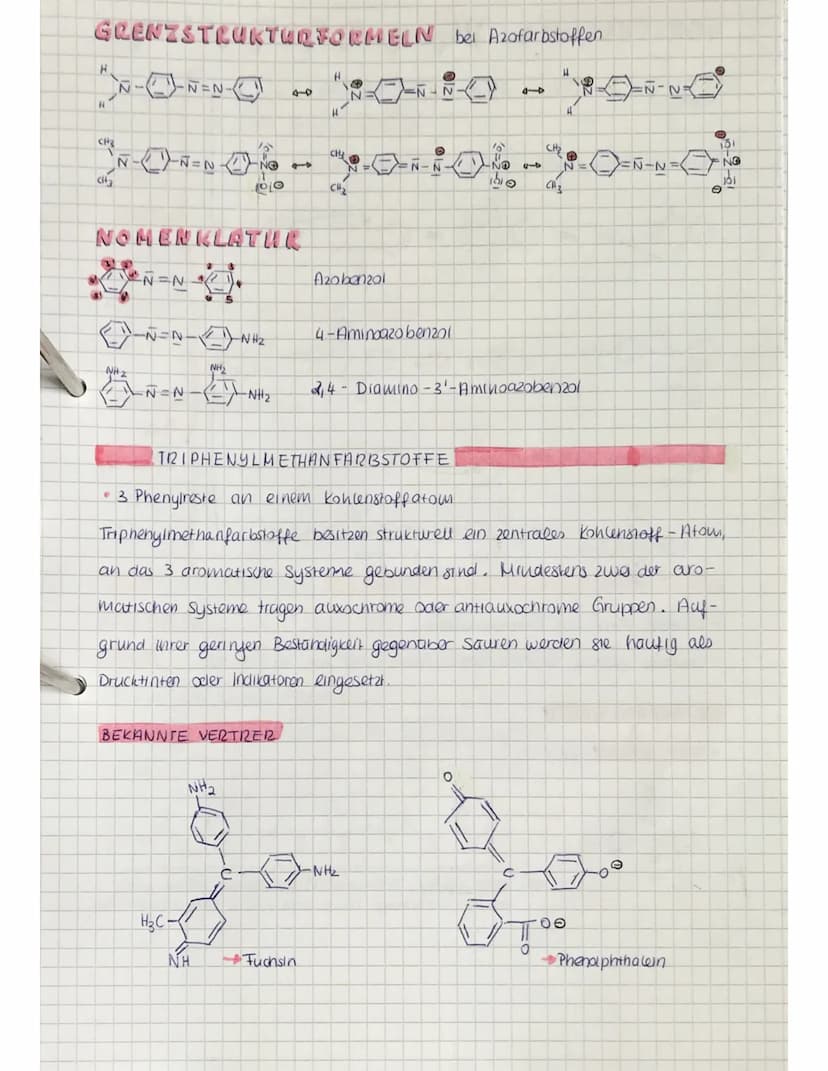 GRENZSTRUKTURFORMELN bei Azofarbstoffen
H H N̄ - N̄ = N̲ - ↔ H H N ⊕ = = N̄ - N̲ ⊖ - ↔ H H N ⊕ = = N̄ - N̲ = ⊖
CH3 CH3 N̄ - N̄ = N̲ - N⊕ O O⊖ ↔ CH3 CH3 N⊕ = = N̄ - N̲ ⊖ - N⊕ O O⊖ ↔ CH3 CH3 N⊕ = = N̄ - N = = N⊕ O⊖ O⊖
NOMENKLATUR
N̄ = N̲ Azobenzol
N̄ = N̲ - NH2 4-Aminoazobenzol
NH2 N̄ = N̲ - NH2 - NH2 2,4 - Diamino - 3' - Aminoazobenzol
TRIPHENYLMETHANFARBSTOFFE
• 3 Phenylreste an einem Kohlenstoffatom
Triphenylmethanfarbstoffe besitzen strukturell ein zentrales Kohlenstoff - Atom,
an das 3 aromatische Systeme gebunden sind. Mindestens zwei der aro-
matischen Systeme tragen auxochrome oder antiauxochrome Gruppen. Auf-
grund ihrer geringen Beständigkeit gegenüber Säuren werden sie häufig als
Drucktinten oder Indikatoren eingesetzt.
BEKANNTE VERTRER
NH2
C
NH2
H3C
NH
→ Fuchsin
O
C
O⊖
O⊖
O
→ Phenolphthalein